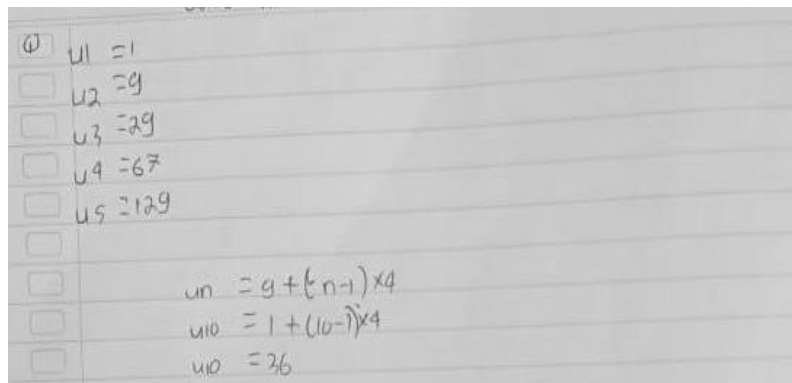 ① u1 =1
u2 =9
u3 =29
u4 =67
u5 =129
un =9+(n-1)×4
u10 =1+(10-1)×4
u10 =36